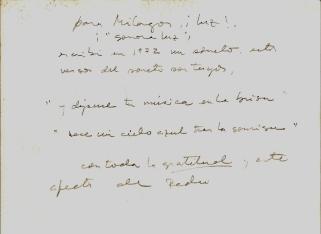 para Milagros, ¡luz!,
¡"sonora luz"
escribí en 1922 un soneto, estos
versos del soneto son tuyos,
"y déjame tu música en la brisa"
"nace un cielo azul tras la sonrisa"
con toda la gratitud y este
afecto de